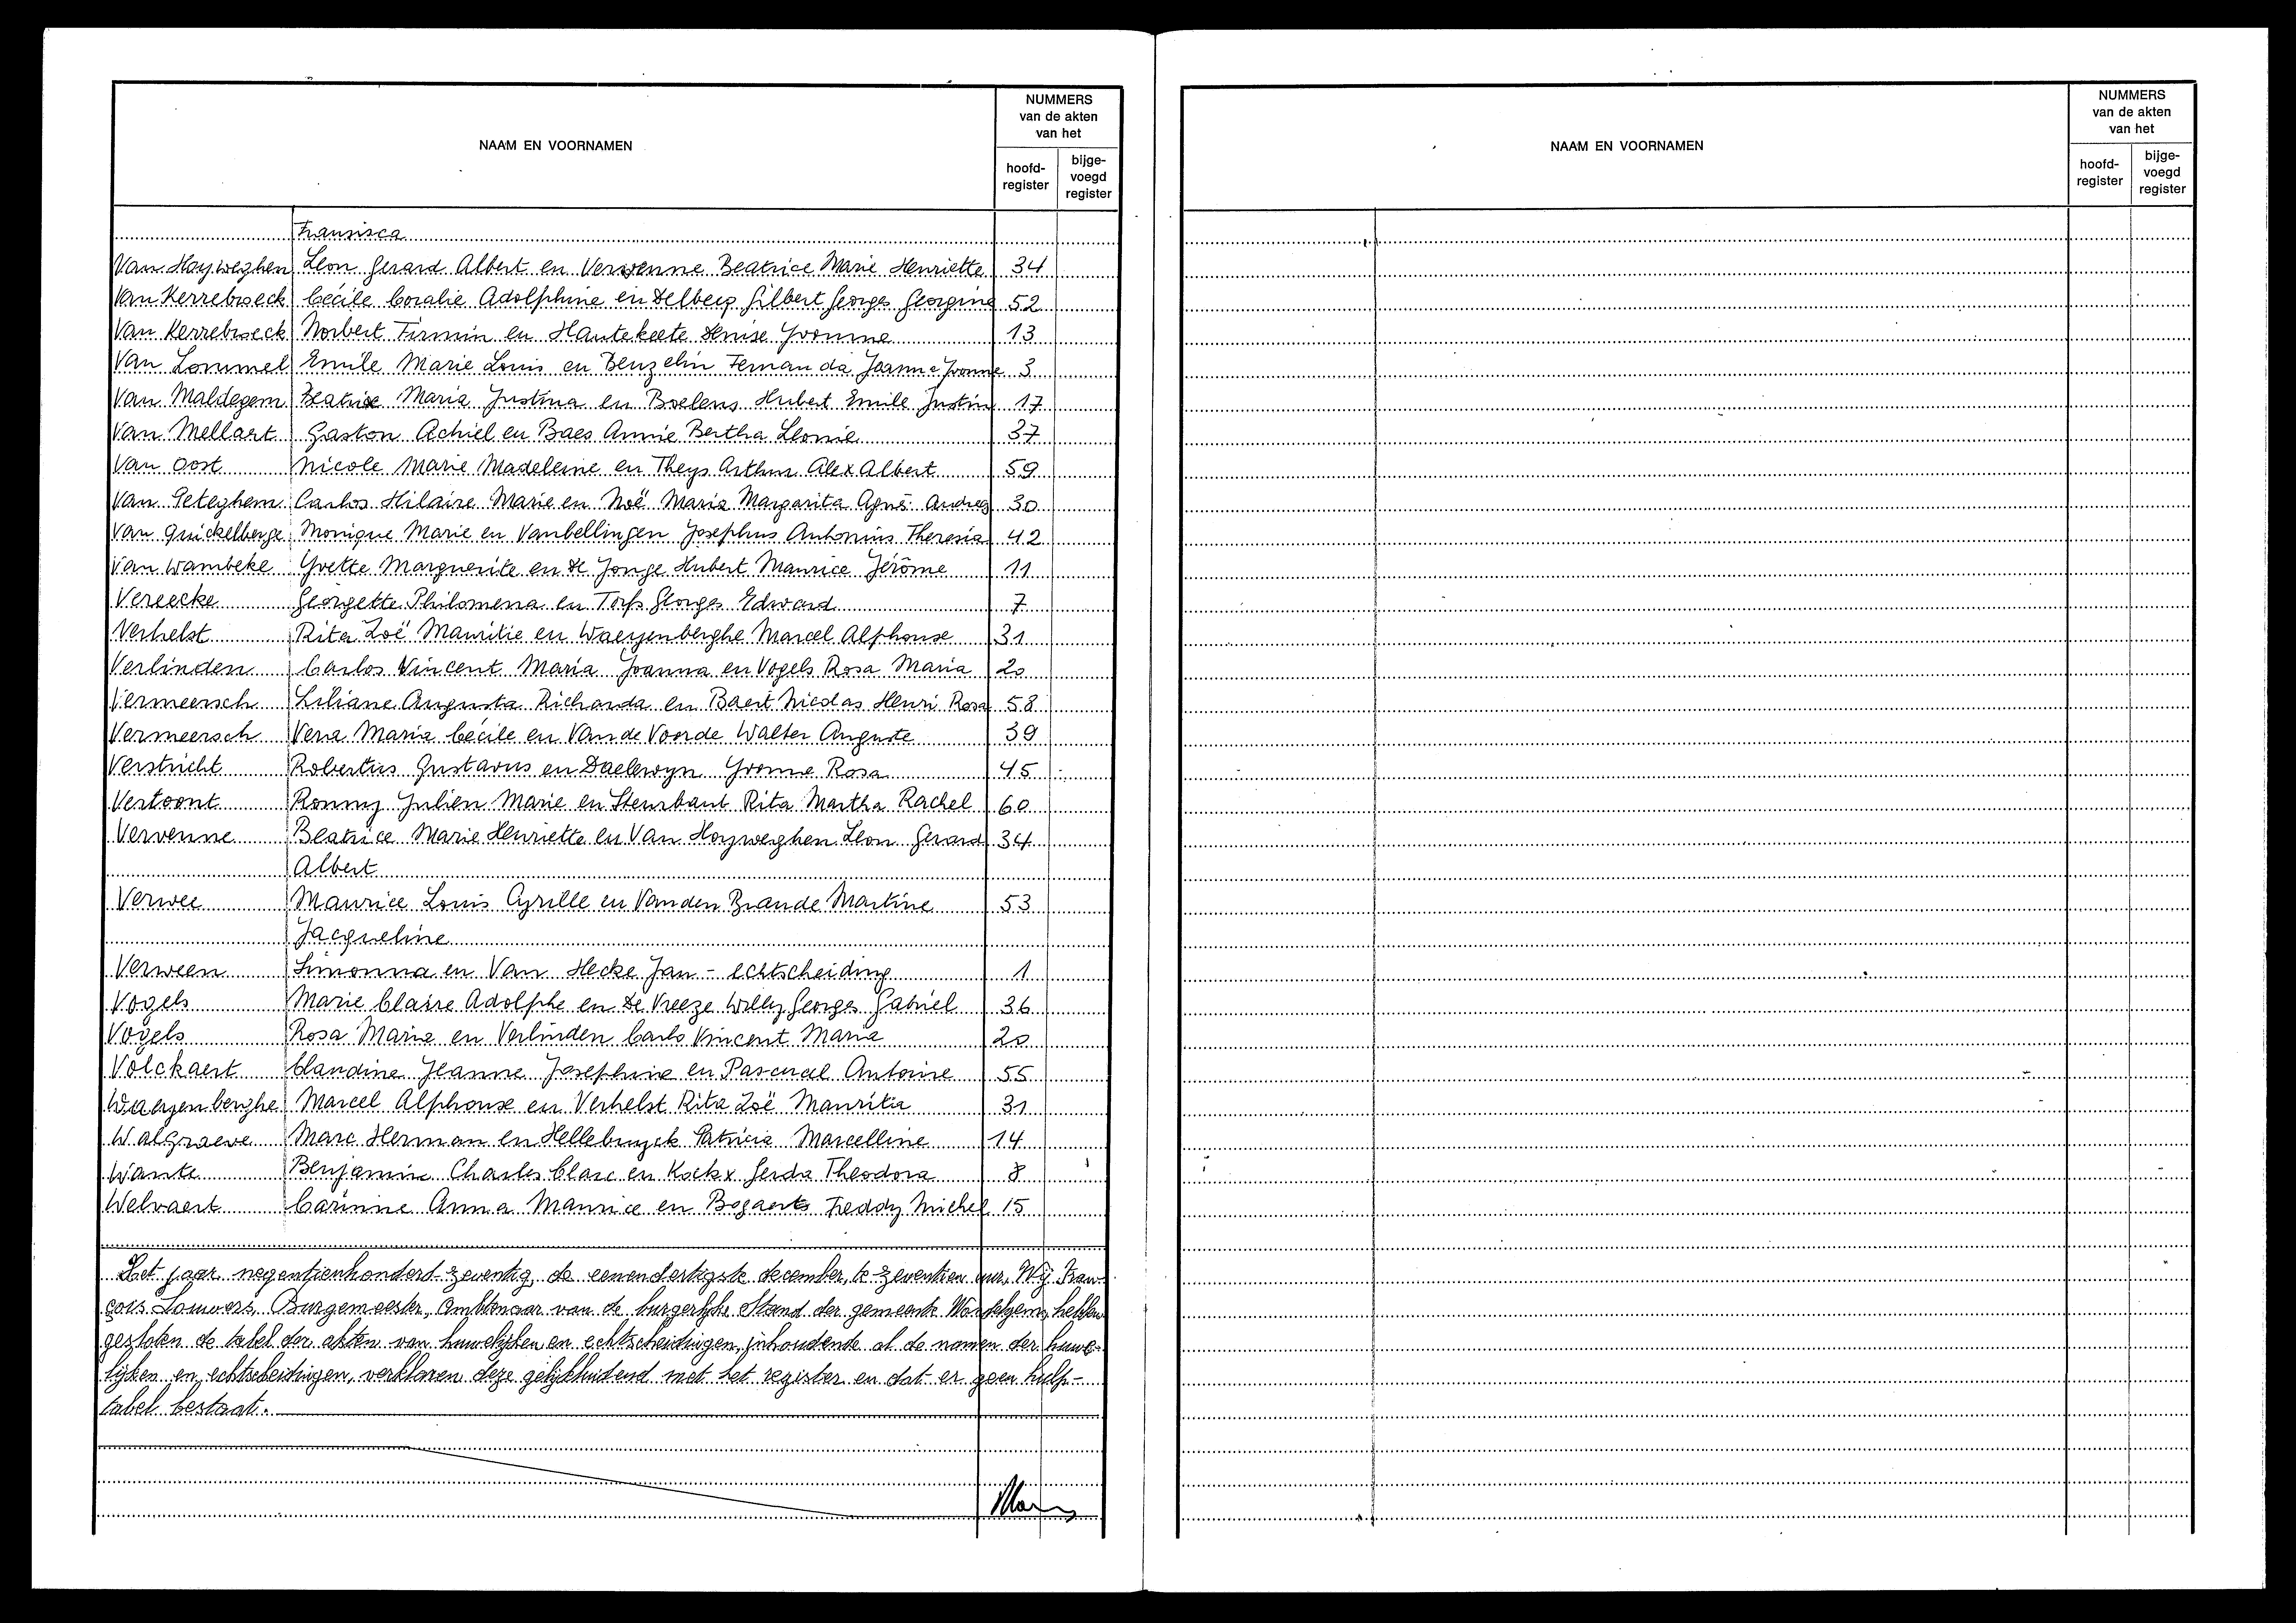 NAAM EN VOORNAMEN
NUMMERS
van de akten
van het
hoofd-
register
bijge-
voegd
register
Fransisca
Van Hoyweghen Leon Gerard Albert en Vervenne Beatrice Marie Henriette 34
Van Kerrebroeck Cécile Coralie Adolphine en Delberg Gilbert Georges Georgine 52
Van Kerrebroeck Norbert Firmin en Hautekeete Denise Yvonne 13
Van Lommel Emile Marie Louis en Benzelin Fernanda Joanna Yvonne 3
Van Maldegem Beatrix Maria Justina en Boelens Hubert Emile Justin 17
Van Mellaert Gaston Achiel en Baes Annie Bertha Leonie 37
Van Oost Nicole Marie Madeleine en Theys Arthur Alex Albert 59
Van Peteghem Carlos Hilaire Marie en Noë Maria Margarita Agnès Andrea 30
Van Quickelberge Monique Marie en Vanbellingen Josephus Antonius Theresia 42
Van Wambeke Yvette Marguerite en De Jonge Hubert Maurice Jérôme 11
Vereecke Georgette Philomena en Torfs Georges Edward 7
Verhelst Rita Zoë Mauritie en Waeyenberghe Marcel Alphonse 31
Verlinden Carlos Vincent Maria Joanna en Vogels Rosa Maria 20
Vermeersch Liliane Augusta Richarda en Baert Nicolas Henri Rosa 58
Vermeersch Vera Maria Cécile en Van de Voorde Walter Auguste 39
Verstricht Robertus Gustavus en Daelewyn Yvonne Rosa 45
Vertoont Ronny Julien Marie en Steurbaut Rita Martha Rachel 60
Vervenne Beatrice Marie Henriette en Van Hoyweghen Leon Gerard 34
Albert
Verwee Maurice Louis Cyrille en Vanden Brande Martine 53
Jacqueline
Verween Simonna en Van Hecke Jan - echtscheiding 1
Vogels Marie Claire Adolphe en De Vreeze Willy Georges Gabriel 36
Vogels Rosa Maria en Verlinden Carlo Vincent Maria 20
Volckaert Claudine Jeanne Josephine en Pascual Antoine 55
Waeyenberghe Marcel Alphonse en Verhelst Rita Zoë Mauritia 31
Walgraeve Marc Herman en Hellebuyck Patricia Marcelline 14
Wante Benjamin Charles Clare en Kockx Gerda Theodora 8
Welvaert Carinne Anna Maurice en Bogaerts Freddy Michel 15
Het jaar negentienhonderd zeventig, de eenendertigste december, te zeventien uur, Wij Fran-
çois Louwers, Burgemeester, Ambtenaar van de burgerlijke Stand der gemeente Wondelgem, hebben
gesloten de tabel der akten van huwelijken en echtscheidingen, inhoudende al de namen der huwe-
lijken en echtscheidingen, verklaren deze gelijkluidend met het register en dat er geen hulp-
tabel bestaat.
NAAM EN VOORNAMEN
NUMMERS
van de akten
van het
hoofd-
register
bijge-
voegd
register